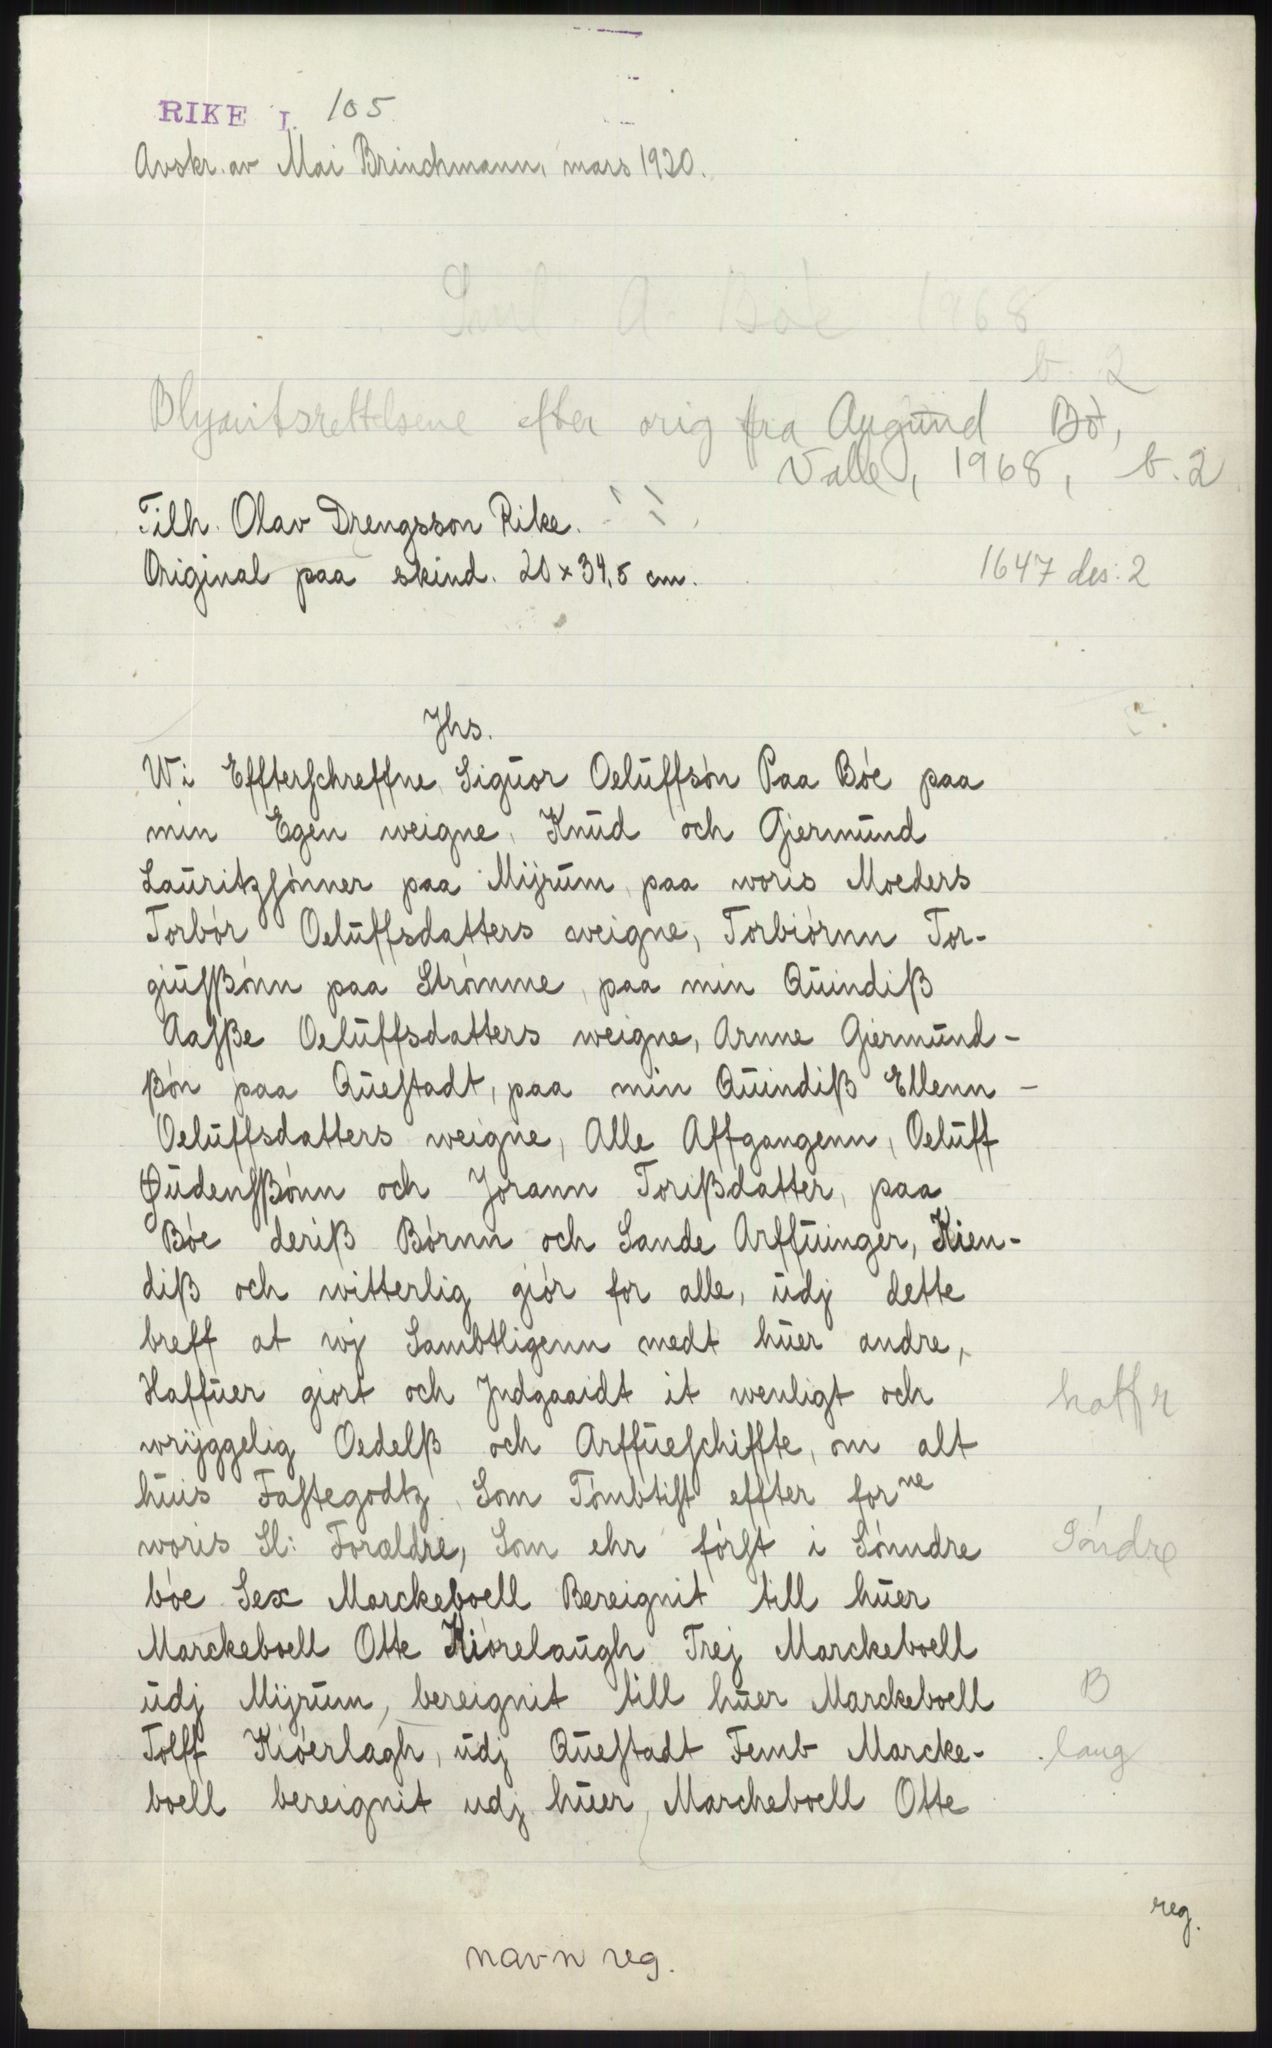 RIKE I. 105
Avskr. av Mai Brinchmann, mars 1920.
A. Bóe 1968
b. 2
Blyantsrettelsene efter orig fra Augund Bø,
Valle, 1968, b. 2
Tilh. Olav Drengsson Rike.
Original paa skind. 20 x 34,5 cm.
1647 des: 2
Jhs.
Wi Effterschreffne Siguor Oeluffsón Paa Bóe paa
min Egen weigne, Knud och Giermund
Lauritzsónner paa Mijrum, paa woris Moeders
Torbór Oeluffsdatters weigne, Torbiórnn Tor-
giulsßónn paa Strómme, paa min Quindiß
Aasße Oeluffsdatters weigne, Arnne Giermund-
ßón paa Questadt, paa min Quindiß Ellenn
Oeluffsdatters weigne, Alle Affgangenn, Oeluff
Gudensßónn och Jórann Torißdatter, paa
Bóe deriß Bórnn och Sande Arffuinger, Kien-
diß och witterlig giór for alle, udj dette
breff at wj Sambtligenn medt huer andre,
Haffuer giort och Jndgaaidt it wenligt och haffr
wrijggelig Oedelß och Arffueschiffte, om alt
huis Fastegodtz, Som Tómbtist effter forne
woris Sl: Foraeldre, Som ehr fórst i Sónndre Sóndre
bóe Sex Marckeboell Bereignit till huer
Marckeboell Otte Kiórelaugh Trej Marckeboell
udj Mijrum, bereignit till huer Marckeboell B
Tolff Kióerlagh, udj Questadt Femb Marcke- laug
boell bereignit udj huer Marckeboell Otte
reg.
navn reg.